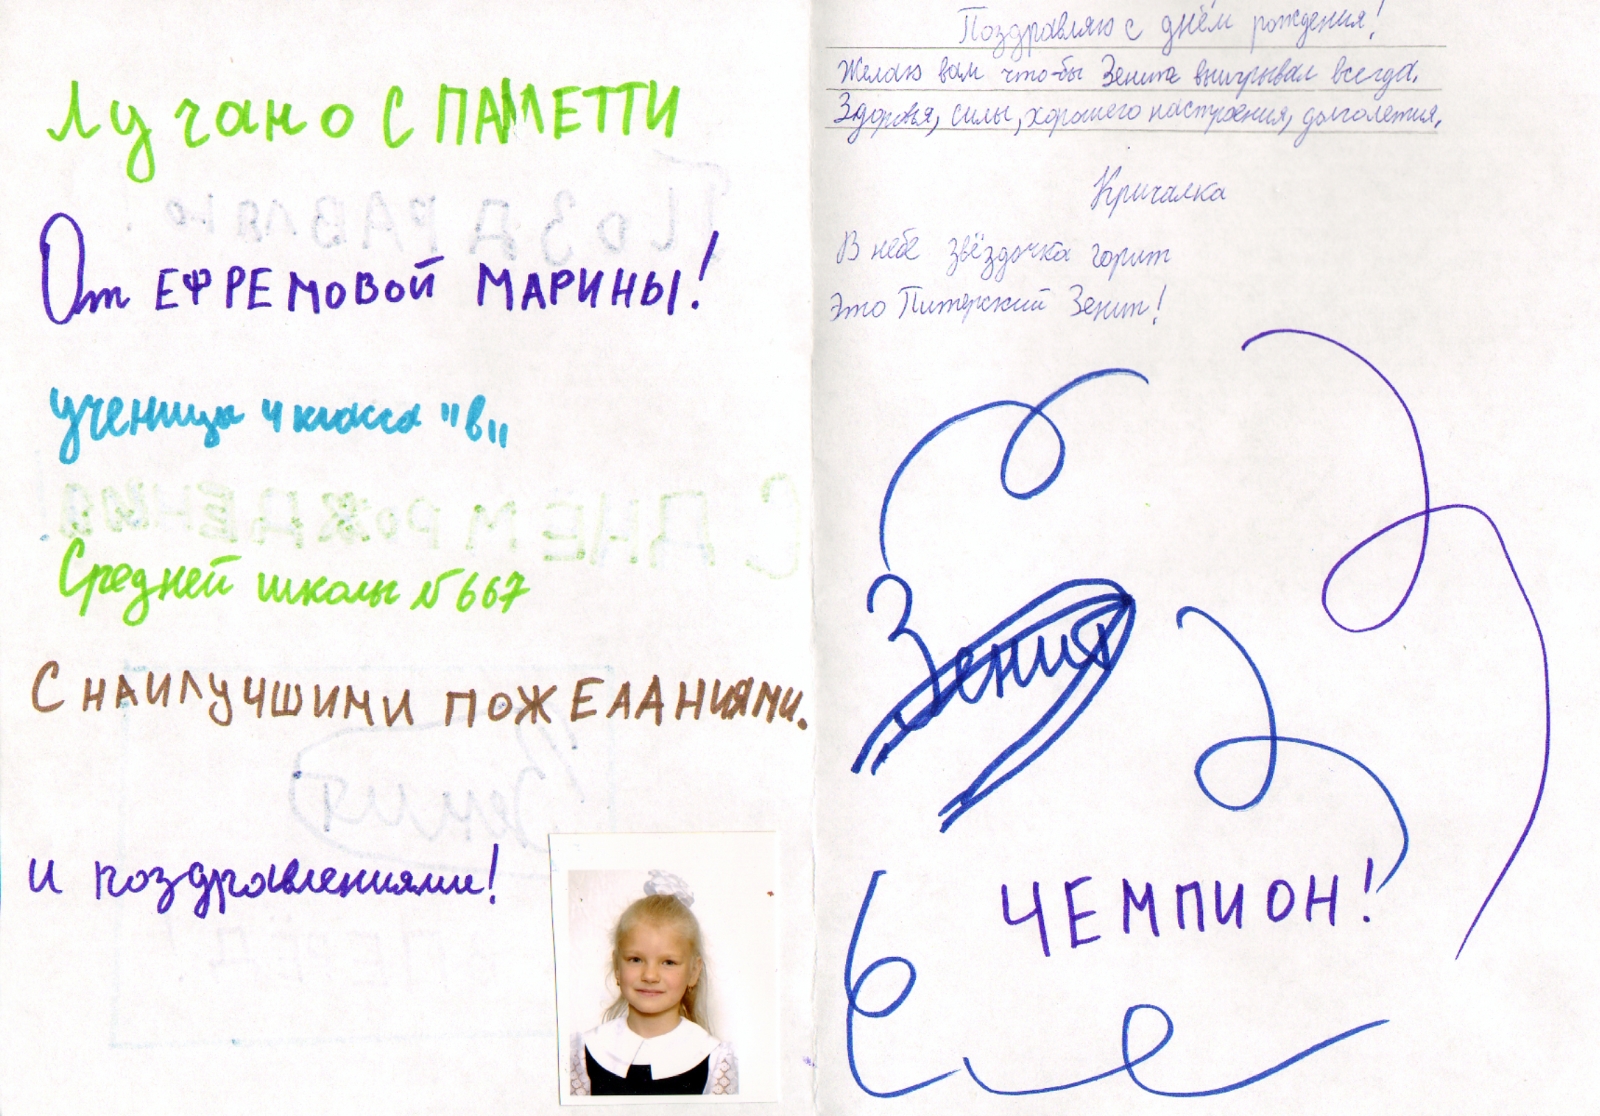 Лучано СПАЛЕТТИ
От ЕФРЕМОВОЙ МАРИНЫ!
ученица 4 класса "В"
Средней школы № 667
С НАИЛУЧШИМИ ПОЖЕЛАНИЯМИ.
и поздравлениями!
Поздравляю с днём рождения!
Желаю вам что-бы Зенит выигрывал всегда.
Здоровья, силы, хорошего настроения, долголетия.
Кричалка
В небе звёздочка горит
Это Питерский Зенит!
Зенит
ЧЕМПИОН!
ПОЗДРАВЛЯЮ!
С ДНЕМ РОЖДЕНИЯ!
Зенит